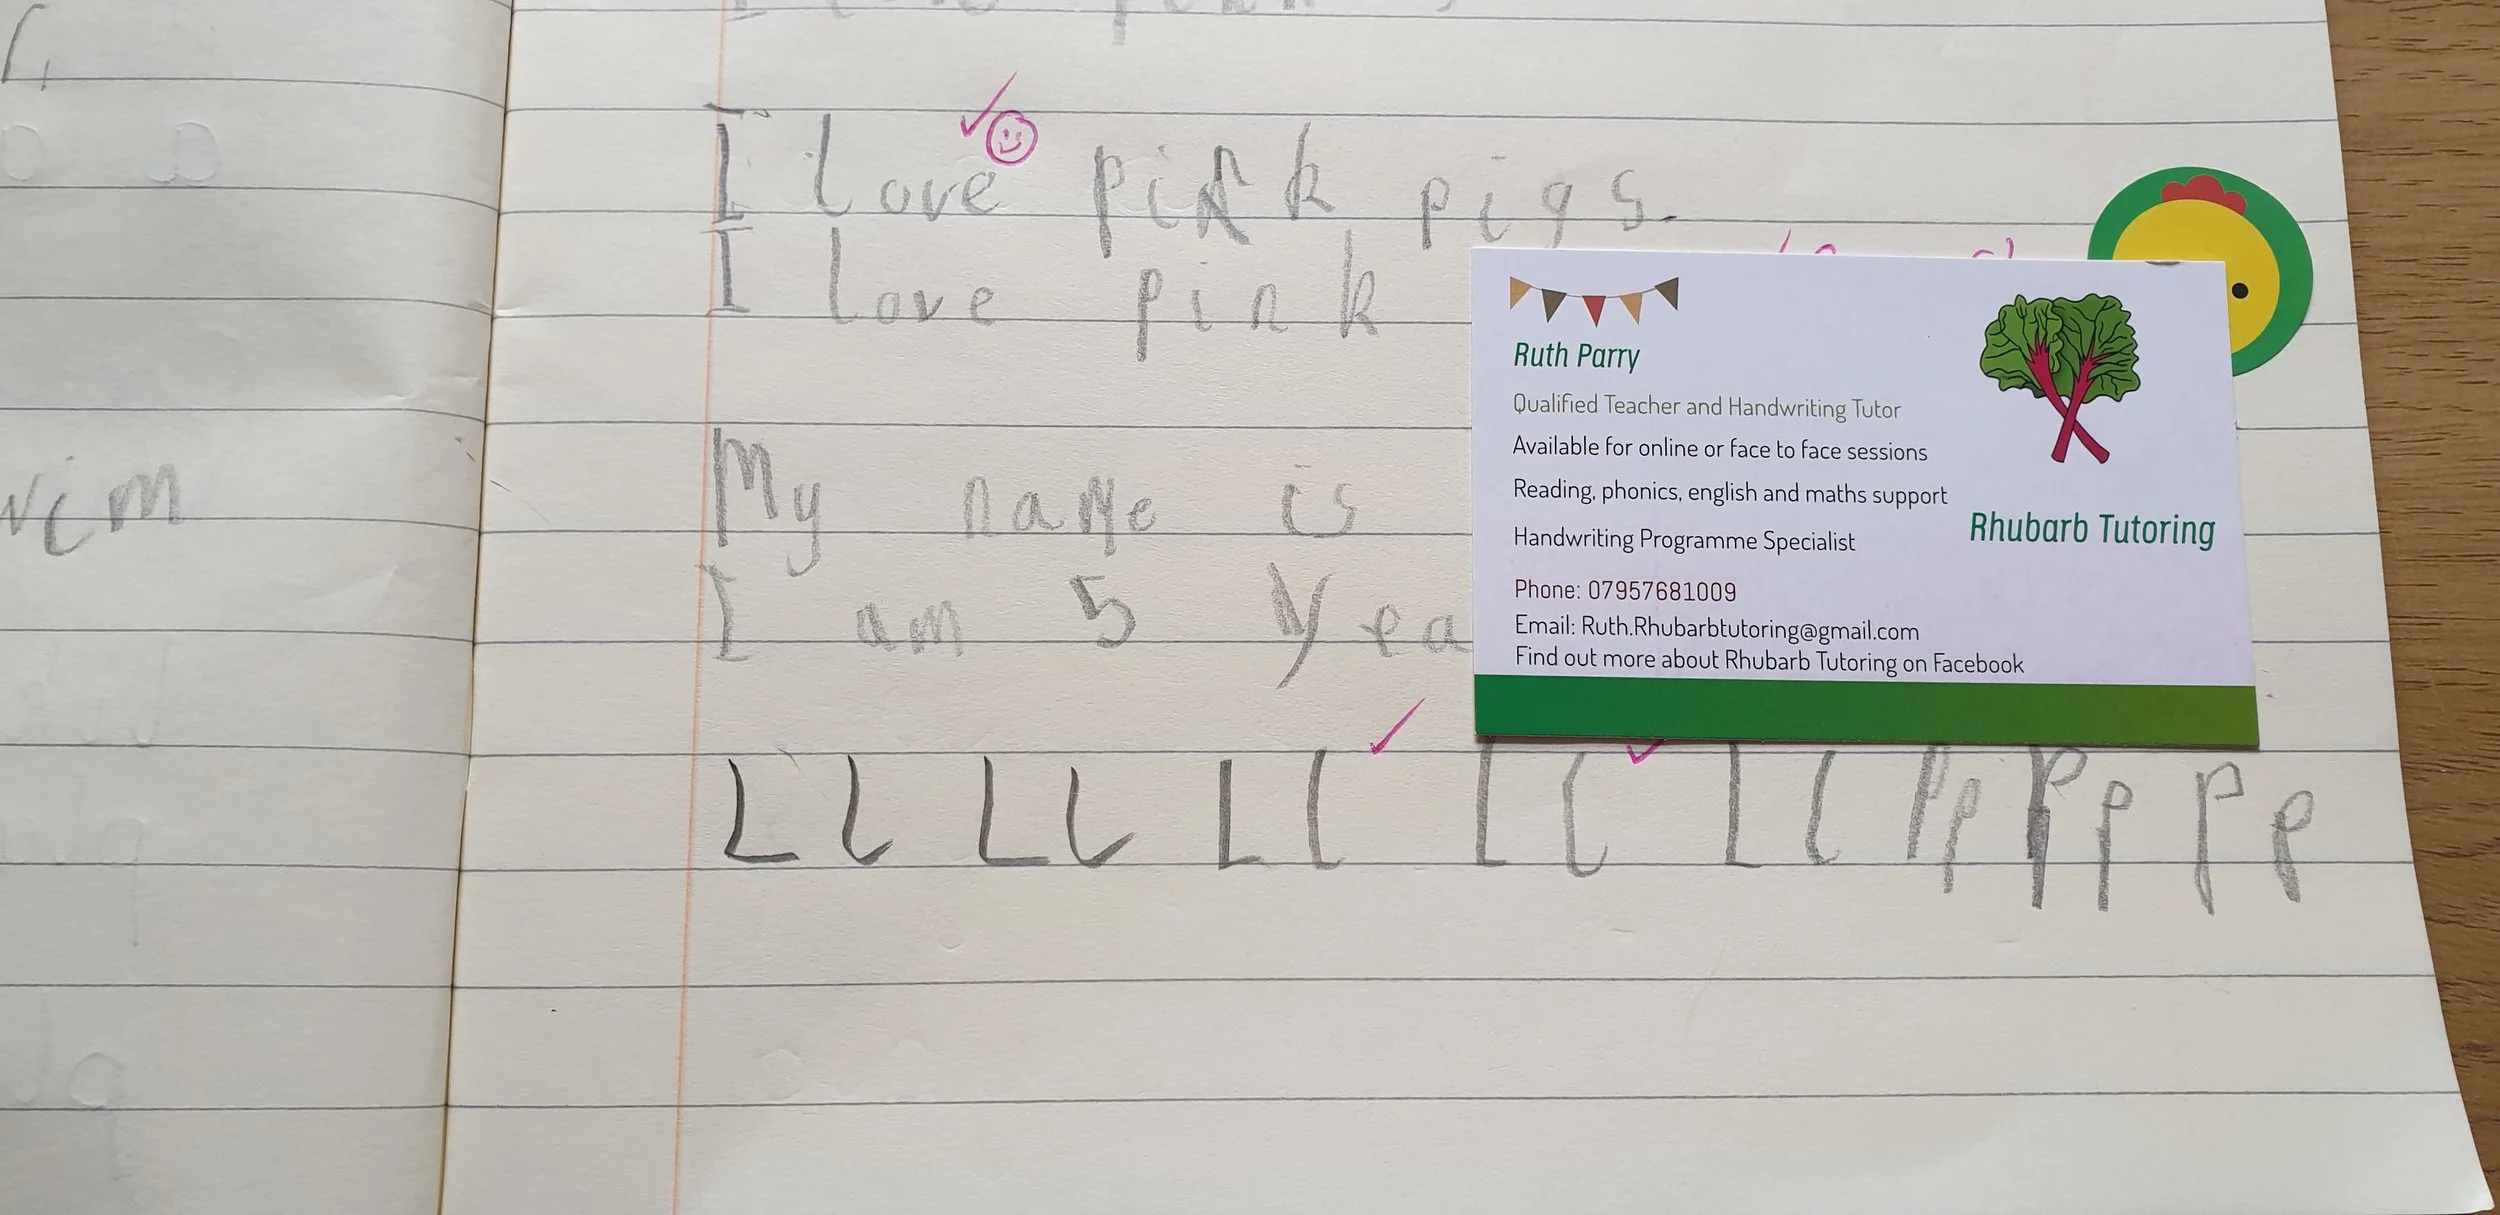 I love pink pigs.
I love pink
My name is
I am 5 yea
L l L l L l L l L l P p P p P p
Ruth Parry
Qualified Teacher and Handwriting Tutor
Available for online or face to face sessions
Reading, phonics, english and maths support
Handwriting Programme Specialist
Phone: 07957681009
Email: Ruth.Rhubarbtutoring@gmail.com
Find out more about Rhubarb Tutoring on Facebook
Rhubarb Tutoring